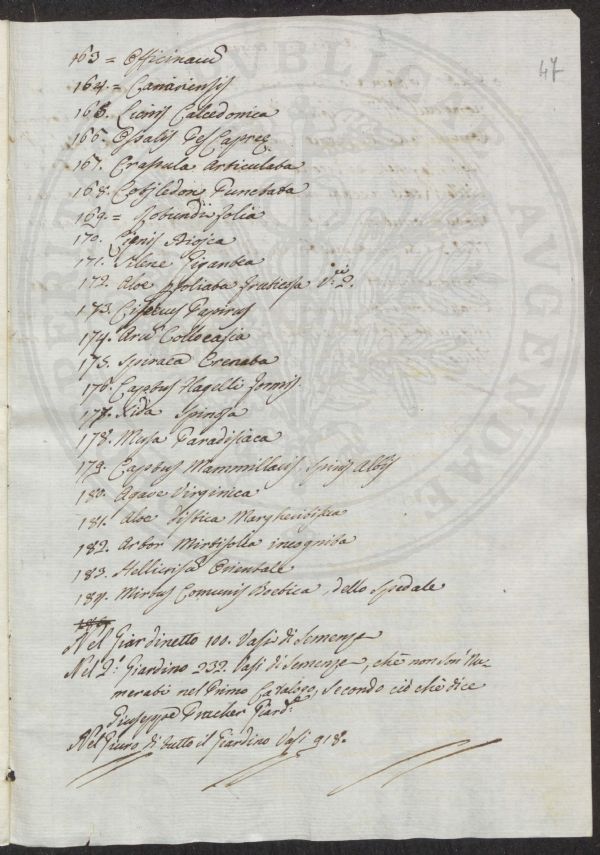 47
163 = Officinalis
164. = Canariensis
165. Licnis Calcedonica
166. Oxalis Pes Capræ
167. Crassula Articulata
168. Cotiledon Punctata
169. = Rotundifolia
170. Licnis Dioica
171. Silene Gigantea
172. Aloe Foliata fruticosa V.i 2.
173. Ciperus Papirus
174. Aru Collocasia
175. Spiraea Crenata
176. Cactus Flagelli formis.
177. Sida Spinosa
178. Musa Paradisiaca
179. Cactus Mammillaris. Spinis Albis
180. Agave Virginica
181. Aloe Distica Margheritifera
182. Arbor Mirtifolia incognita
183. Hellicrisu Orientale
184. Mirtus Comunis Boetica, dello Spedale
Nel Giardinetto 100. Vasi di Semenze
Nel 2.o Giardino 232. Vasi di Semenze, che non son' Nu-
merati nel Primo Catalogo, secondo ciò che dice
Giuseppe Giard.e
Nel Giro di tutto il Giardino Vasi 918.
PVBLICAE
AVGENDAE